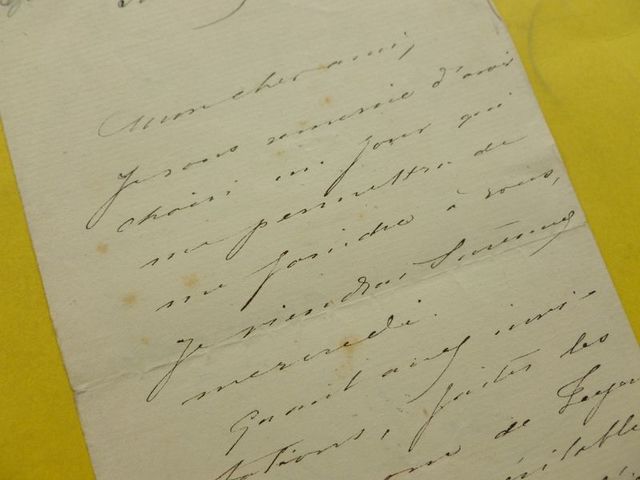 Mon cher ami,
Je vous remercie d'avoir
choisi un jour qui
me permettra de
me joindre à vous,
Je viendrai
mercredi.
Quant aux invi-
tations, faites les
de